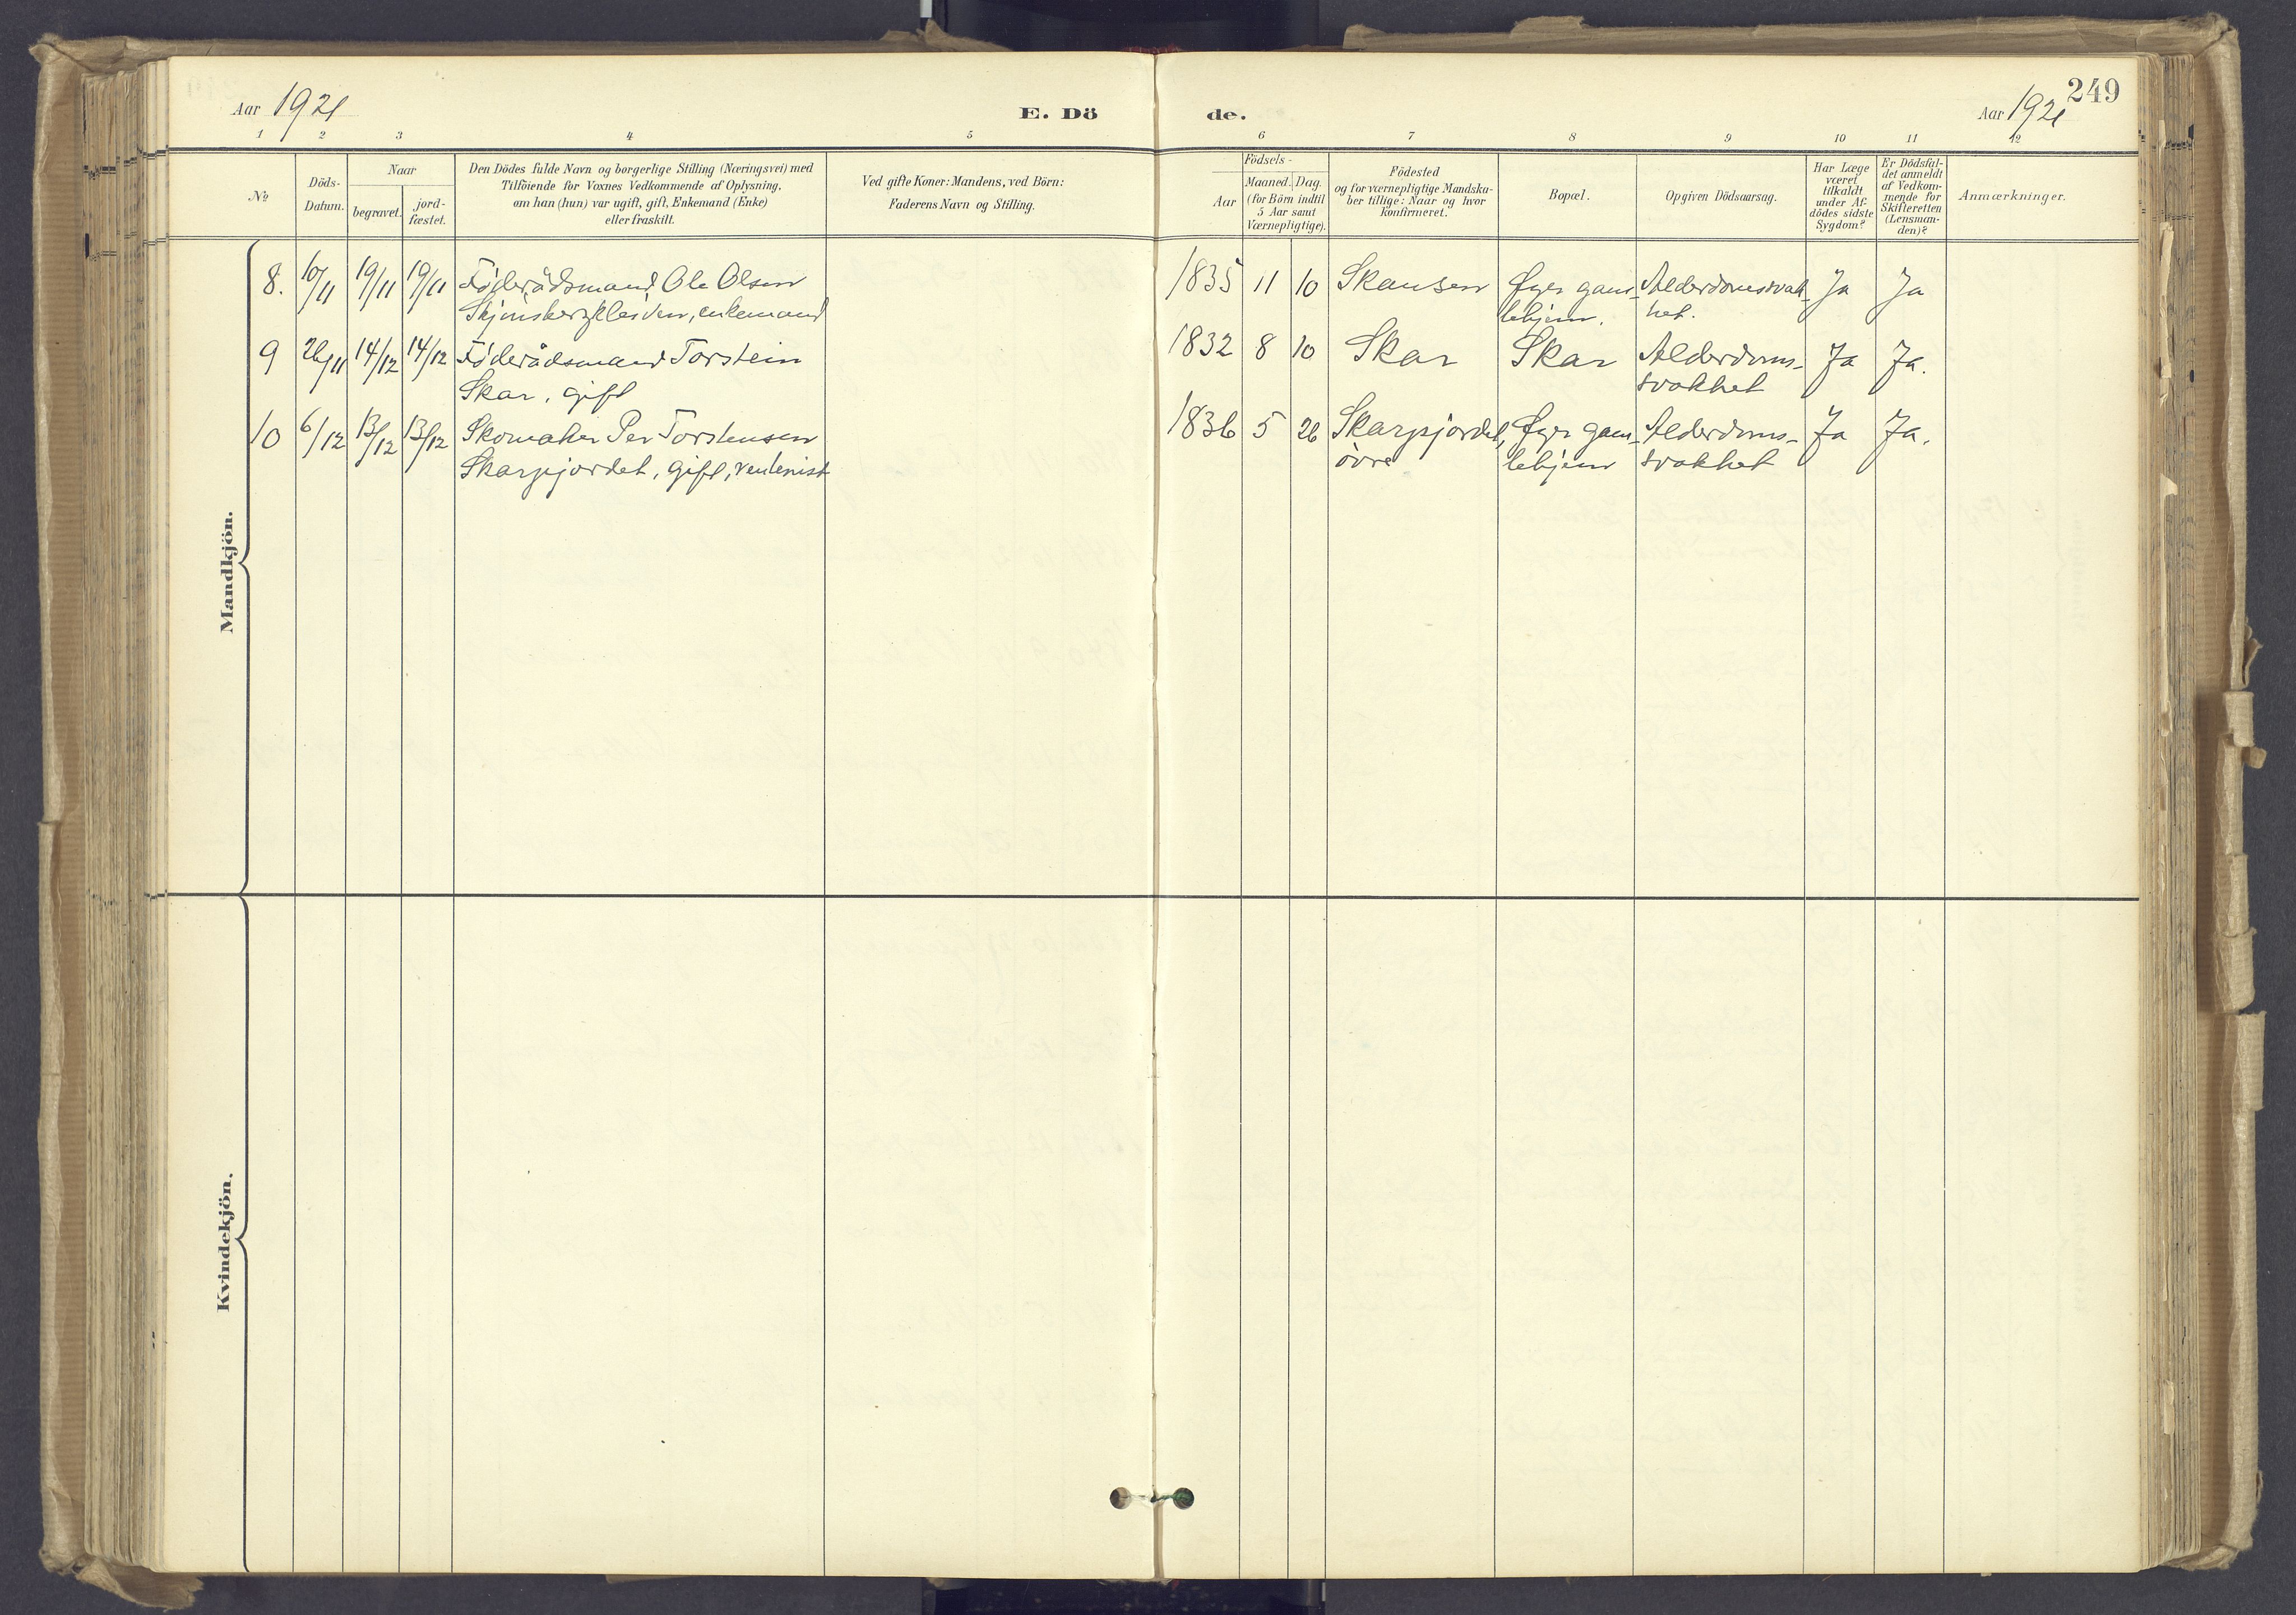 249
Aar 1921
E. Dö
de.
Aar 1921
1 2 3 4 5 6 7 8 9 10 11 12
No
Döds-
Datum.
Naar
begravet.
jord-
fæstet.
Den Dödes fulde Navn og borgerlige Stilling (Næringsvei) med
Tilföiende for Voxnes Vedkommende af Oplysning,
om han (hun) var ugift, gift, Enkemand (Enke)
eller fraskilt.
Ved gifte Koner: Mandens, ved Börn:
Faderens Navn og Stilling.
Födsels-
Aar
Maaned. Dag.
(for Börn indtil
5 Aar samt
Værnepligtige).
Födested
og for værnepligtige Mandsku-
ber tillige: Naar og hvor
konfirmeret.
Bopæl.
Opgiven Dödsaarsag.
Har Læge
været
tilkaldt
under Af-
dödes sidste
Sygdom?
Er Dödsfal-
det anmeldt
af Vedkom-
mende for
Skifteretten
(Lensman-
den)?
Anmærkninger.
Mandkjön.
8. 10/11 19/11 19/11 Föderådsmand Ole Olsen 1835 11 10 Skansen Øyer gam- Alderdomssvak- Ja Ja
enkemand lehjem. het.
9 26/11 14/12 14/12 Föderådsmand Torstein 1832 8 10 Skar Skar Alderdoms- Ja Ja.
Skar, gift svakhet
10 6/12 13/12 13/12 Skomaker Per Torstensen 1836 5 26 Skarpjordet, Øyer gam- Alderdoms- Ja Ja.
Skarpjordet, gift, övre lehjem svakhet
Kvindekjön.